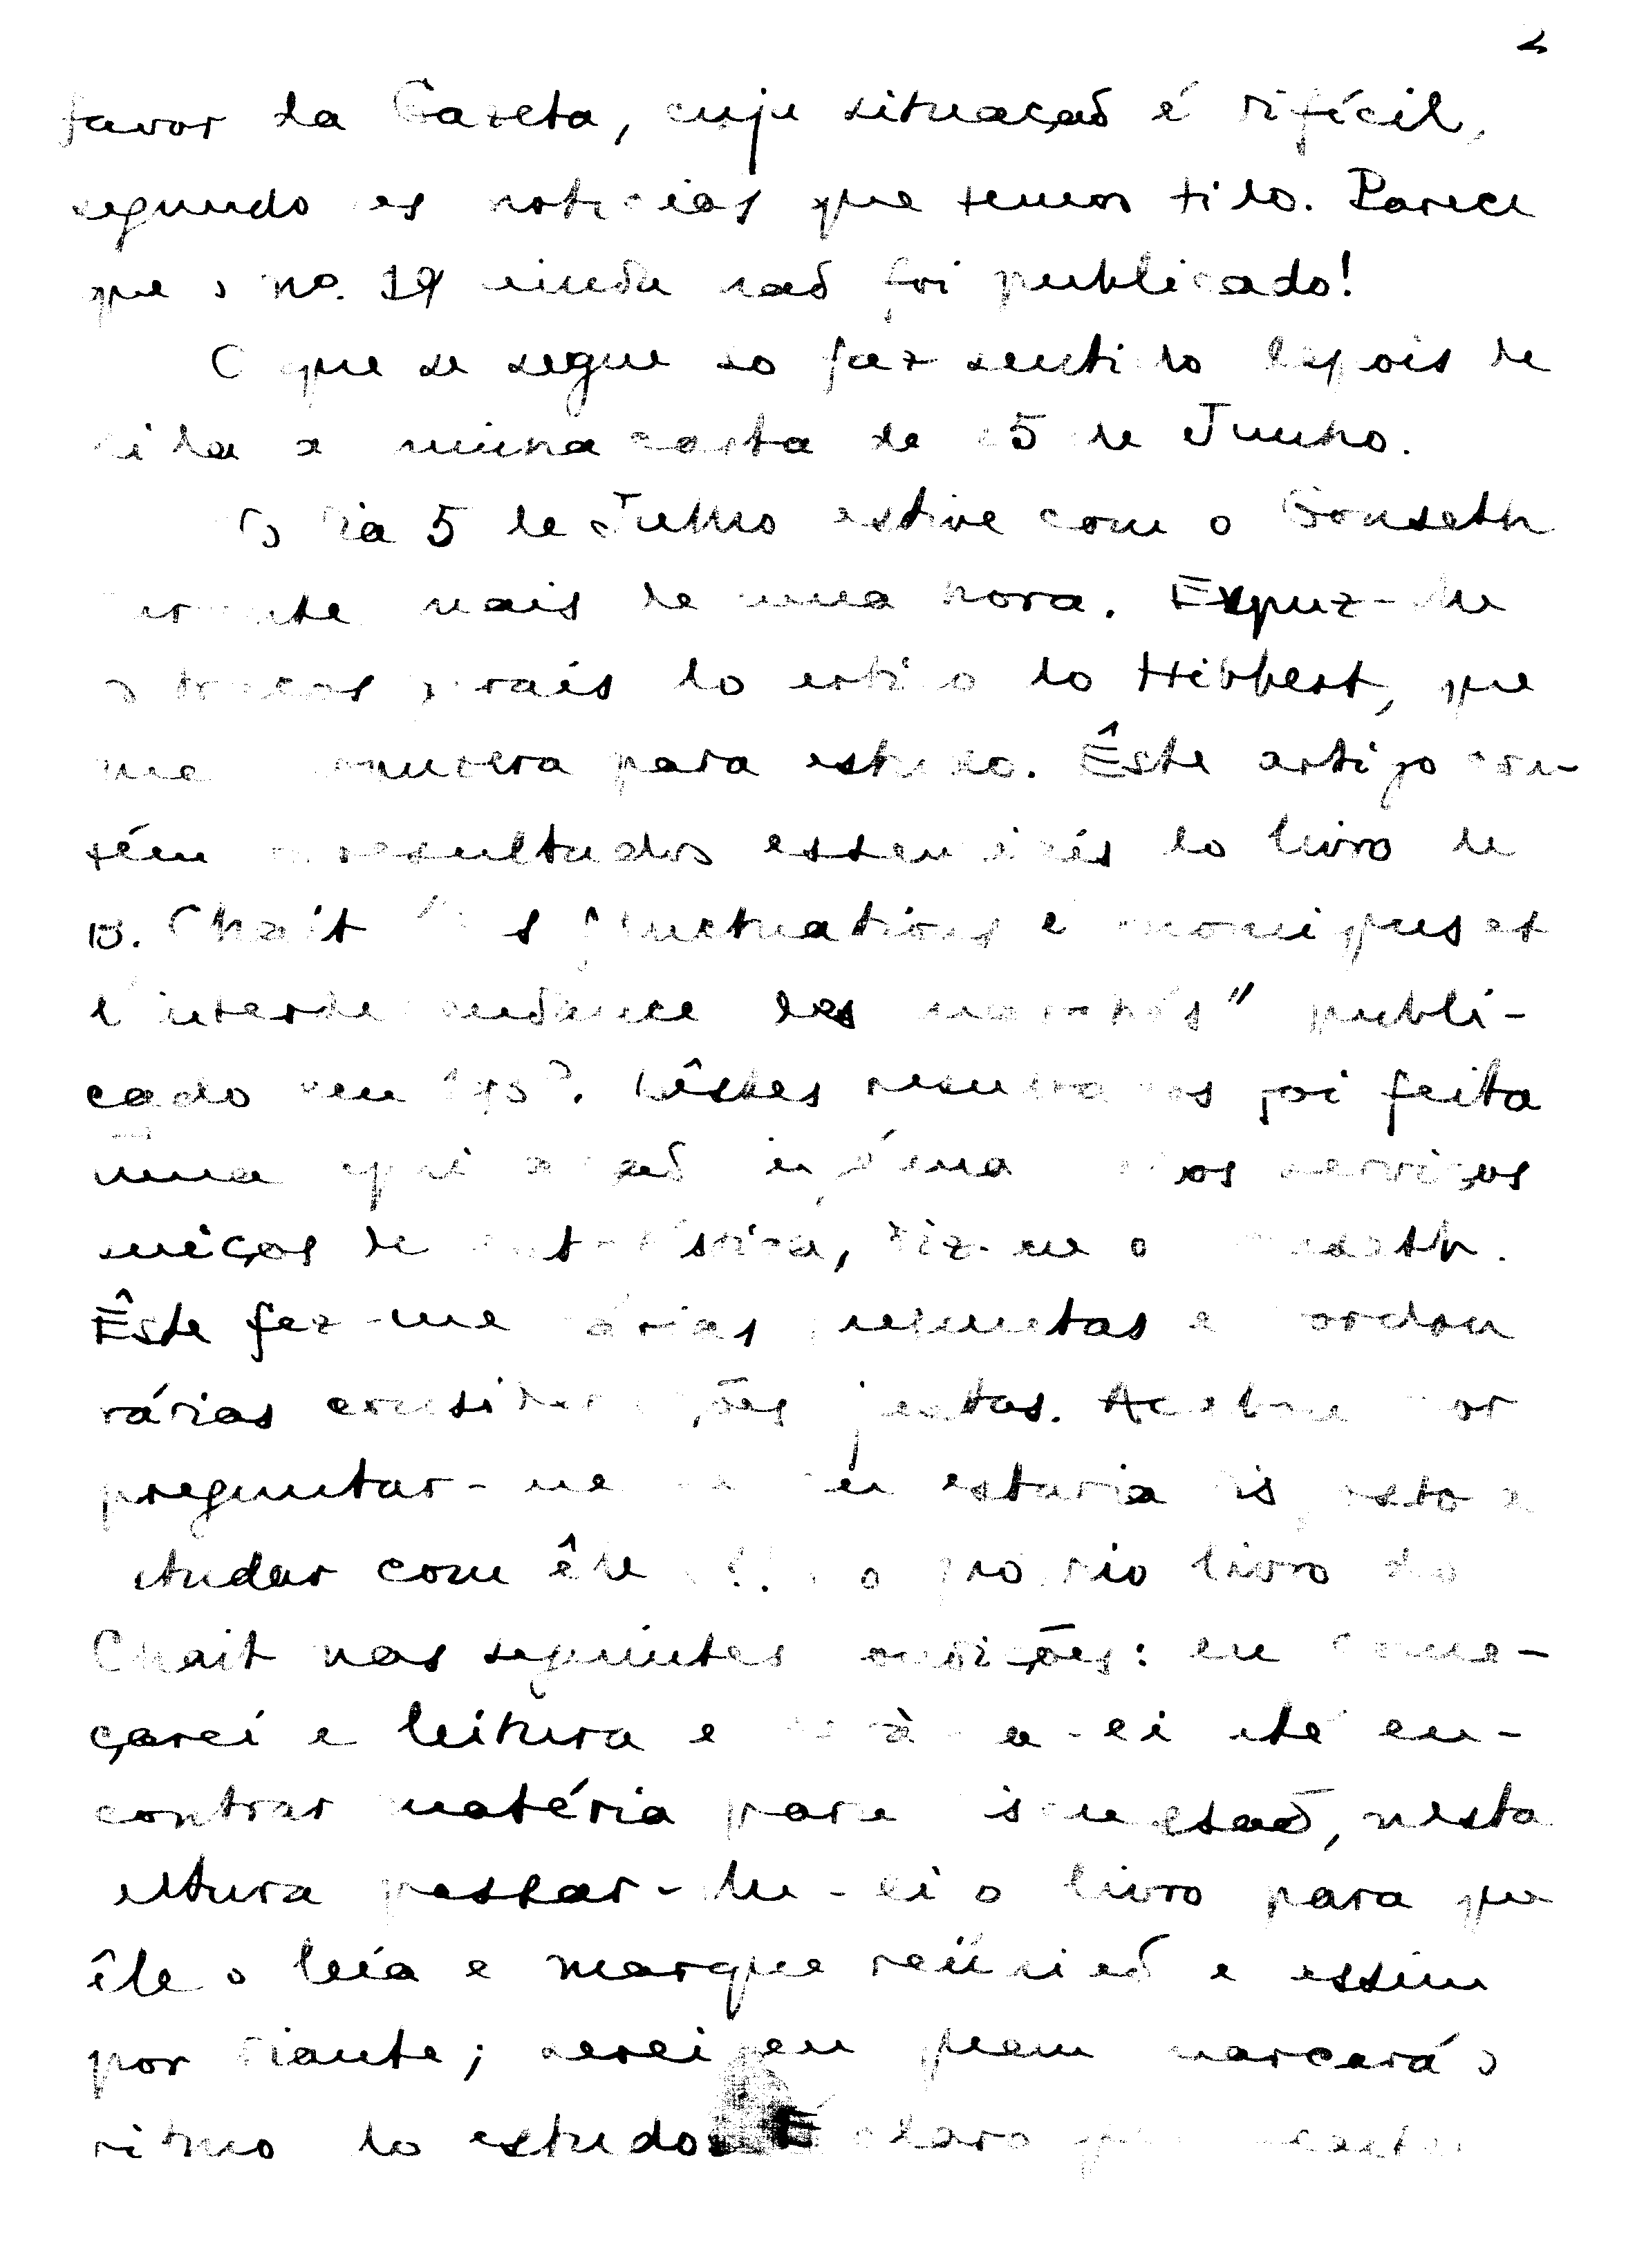 2
favor da Gazeta, cuja situação é difícil,
segundo as notícias que temos tido. Parece
que o no. 19 ainda não foi publicado!
O que se segue só faz sentido depois de
lida a minha carta de 25 de Junho.
O dia 5 de Julho estive com o Gonseth
durante mais de uma hora. Expuz-lhe
os traços gerais do artigo do Hibbert, que
me para estudo. Êste artigo con-
tém os resultados essenciais do livro de
B. Chait "Les fluctuations économiques et
l'interdépendance des marchés" publi-
cado em Dêstes resultados foi feita
uma aplicação dos serviços
suiços de estatística, diz-me o Gonseth.
Êste fez-me várias preguntas e bordou
várias considerações justas. Acabou por
preguntar-me se eu estaria disposto a
estudar com êle o próprio livro do
Chait nas seguintes condições: eu come-
çarei a leitura e até en-
contrar matéria para discussão, nesta
altura passar-lhe-ei o livro para que
êle o leia e marque reünião e assim
por diante; serei eu quem marcará o
ritmo do estudo. É claro que aceitei